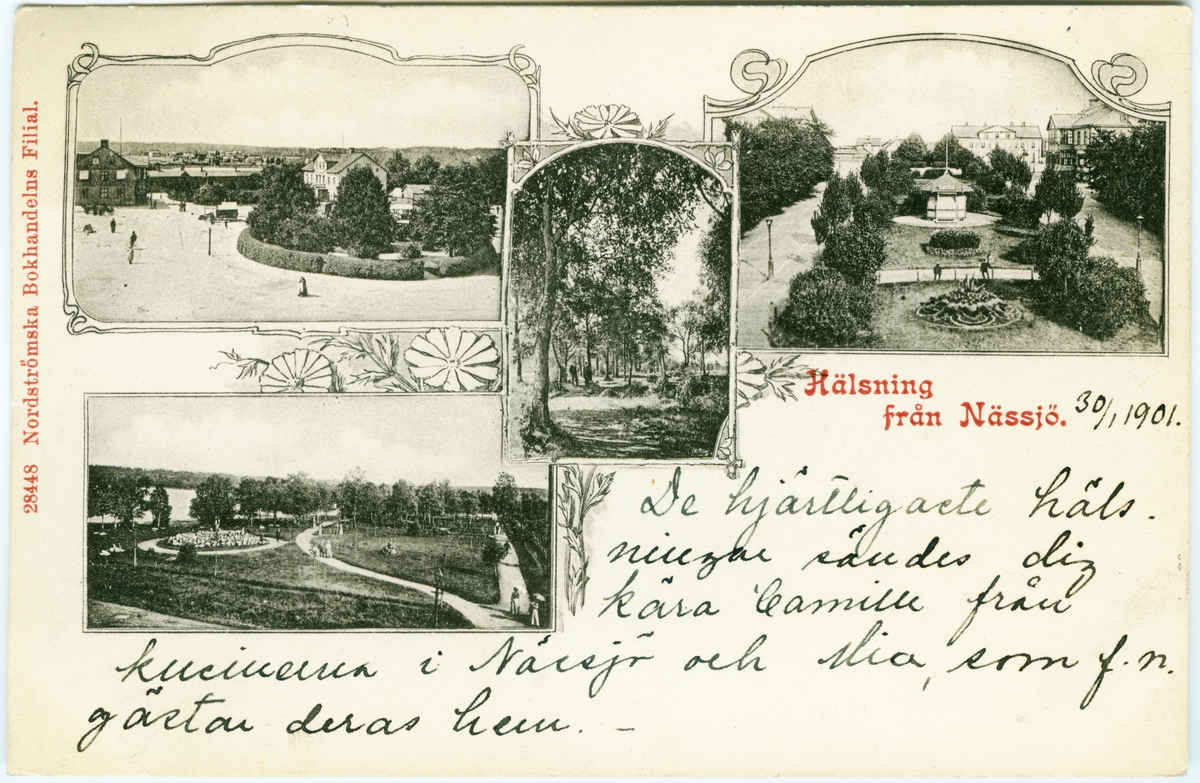 28448 Nordströmska Bokhandelns Filial.
Hälsning
från Nässjö. 30/1 1901.
De hjärtligaste häls-
ningar sändes dig
kära Camille från
kusinerna i Nässjö och Mia, som f.n.
gästar deras hem. –